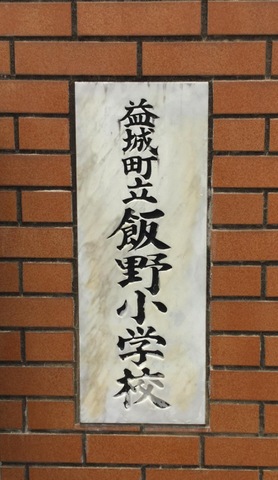 益城町立飯野小学校